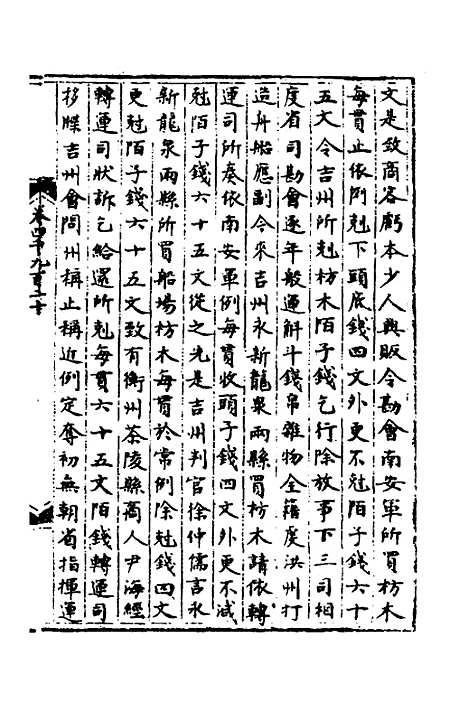 文是致商客虧本少人興販令勘會南安軍所買枋木
每貫止依例剋下頭底錢四文外更不剋陌子錢六十
五文令吉州所剋枋木陌子錢乞行除放事下三司相
度省司勘會逐年般運斛斗錢帛雜物全藉虔洪州打
造舟船應副今來吉州永新龍泉兩縣買枋木請依轉
運司所奏依南安軍例每貫收頭子錢四文外更不減
剋陌子錢六十五文從之先是吉州判官徐仲儒言永
新龍泉兩縣所買船場枋木每貫於常例除剋錢四文
更剋陌子錢六十五文致有衡州茶陵縣商人尹海經
轉運司狀訴乞給還所剋每貫六十五文陌錢轉運司
移牒吉州會問州稱止稱近例定奪初無朝省指揮運
卷四千九百二十